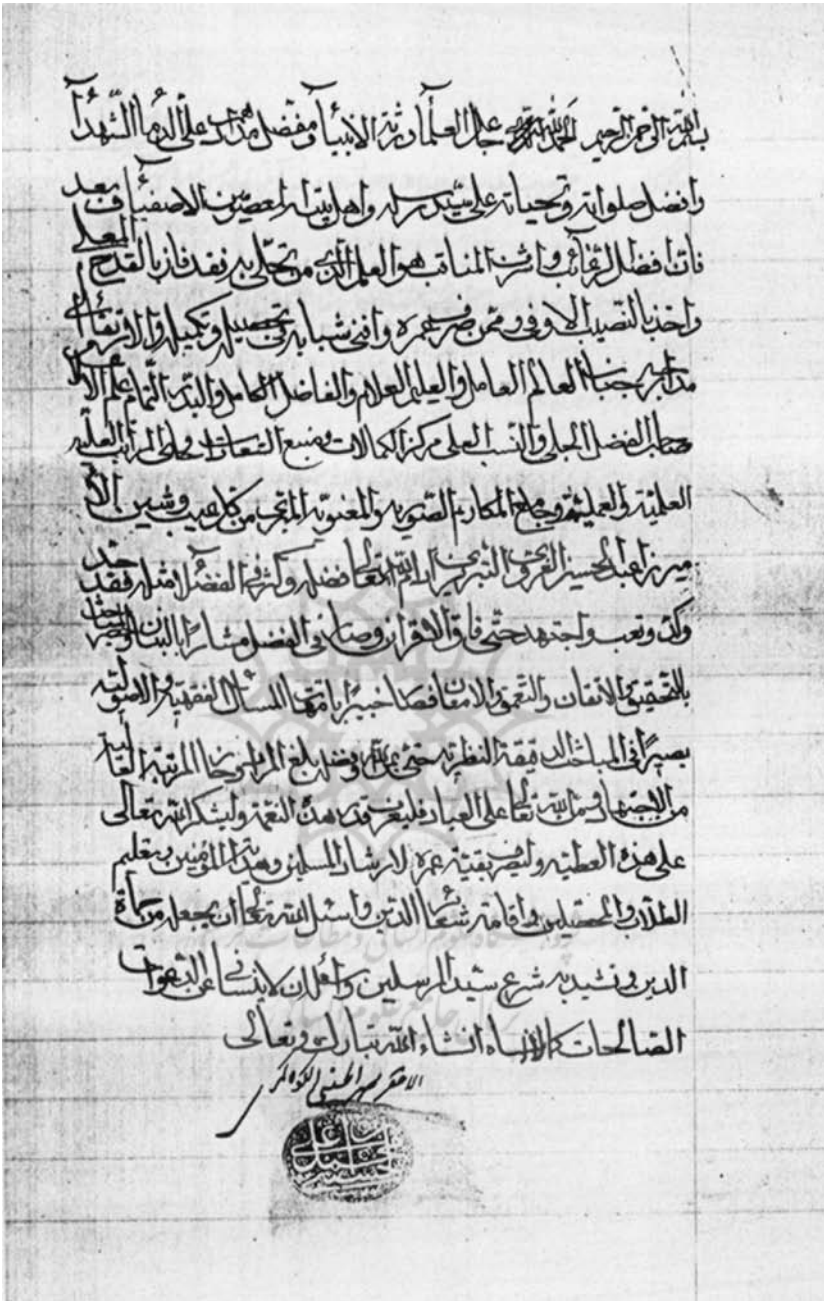 بسم الله الرحمن الرحيم الحمد لله جاعل العلماء ورثة الانبياء ومفضل مدادهم على دماء الشهداء
وافضل صلواته وتحياته على سيد رسله واهل بيته المعصومين الاصفياء وبعد
فان افضل الرغائب واشرف المناقب هو العلم الذى من تحلى به فقد فاز بالقدح المعلى
واخذ بالنصيب الاوفى وممن صرف عمره وافنى شبابه فى تحصيله وتكميله والارتقاء الى
مدارجه جناب العالم العامل والعليم العلام والفاضل الكامل والبدر التمام علم الاعلام
صاحب الفضل الجلى والنسب العلى مركز الكمالات ومنبع السعادات حاوى المراتب العليه
العلمية والعملية وجامع المكارم الصوريه والمعنويه المبرء من كل عيب وشين
ميرزا عبد الحسين الغروى التبريزى ادام الله تعالى فضله وكثر فى الفضلاء مثله فقد جد
وكد وتعب واجتهد حتى فاق الاقران وصار فى الفضل مشارا بالبنان
بالتحقيق والاتقان والتعمق والامعان فصار خبيرا بامهات المسائل الفقهية والاصولية
بصيرا فى المباحث الدقيقة النظرية حتى بلغ المرام وحاز المرتبة العالية
من الاجتهاد من الله تعالى على العباد فليعرف قدر هذه النعمة وليشكر الله تعالى
على هذه العطيه وليصرف بقية عمره لارشاد المسلمين وهداية المؤمنين وتعليم
الطلاب والمحصلين واقامة شعائر الدين واسئل الله تعالى ان يجعله من حماة
الدين ومشيد به شرع سيد المرسلين وان لا ينسانى عن الدعوات
الصالحات كما لا انساه انشاء الله تبارك وتعالى
الاحقر الحسنى